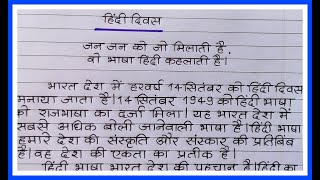 हिंदी दिवस
जन जन को जो मिलाती है,
वो भाषा हिंदी कहलाती है।
भारत देश में हरवर्ष 14 सितंबर को हिंदी दिवस
मनाया जाता है। 14 सितंबर 1949 को हिंदी भाषा
को राजभाषा का दर्जा मिला। यह भारत देश में
सबसे अधिक बोली जानेवाली भाषा है। हिंदी भाषा
हमारे देश की संस्कृति और संस्कार की प्रतिबिंब
है। वह देश की एकता का प्रतीक है।
हिंदी भाषा भारत देश की पहचान है। हिंदी का